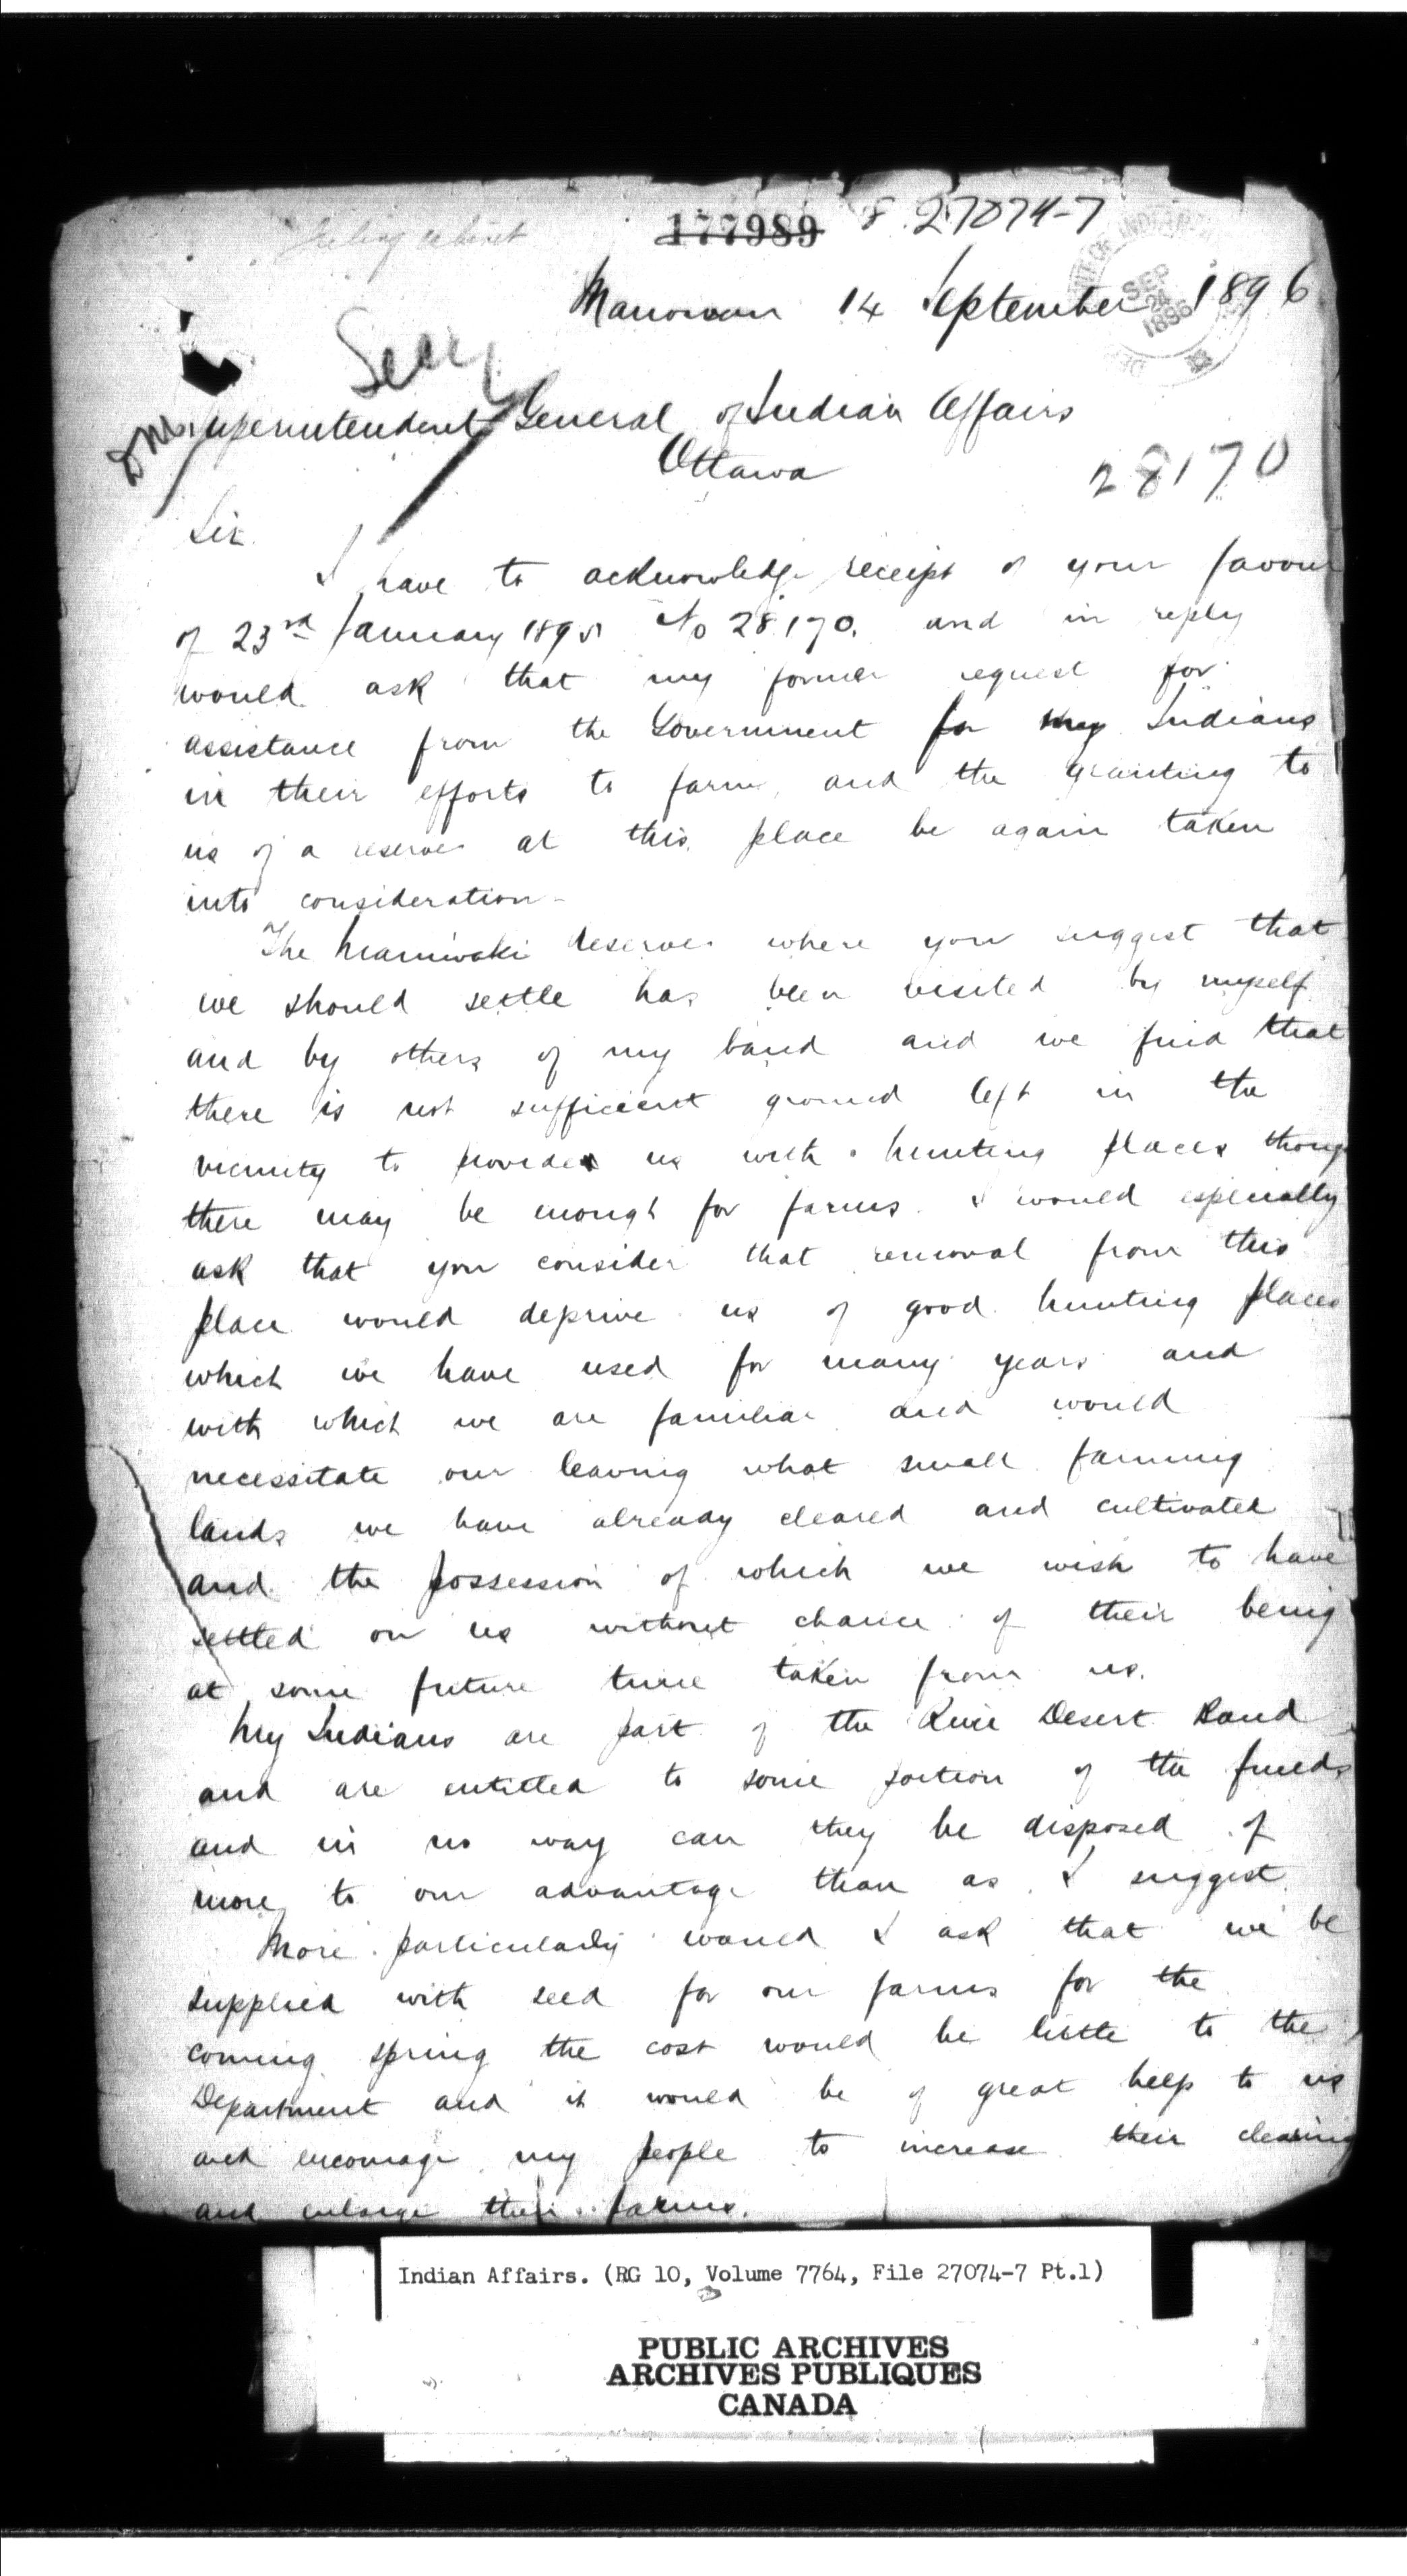 177989 F. 27074-7
Manowan 14 September 1896
SEP
24
1896
Secy
Superintendent General of Indian Affairs
Ottawa
28170
Sir
I have to acknowledge receipt of your favour
of 23rd January 1895 No 28.170. and in reply
would ask that my former request for
assistance from the Government for my Indians
in their efforts to farm, and the granting to
us of a reserve at this place be again taken
into consideration -
The Maniwaki Reserve where you suggest that
we should settle has been visited by myself
and by others of my band and we find that
there is not sufficient ground left in the
vicinity to provide us with hunting places thoug
there may be enough for farms. I would especially
ask that you consider that removal from this
place would deprive us of good hunting places
which we have used for many years and
with which we are familiar and would
necessitate our leaving what small farming
lands we have already cleared and cultivated
and the possession of which we wish to have
settled on us without chance of their being
at some future time taken from us.
My Indians are part of the River Desert Band
and are entitled to some portion of the funds
and in no way can they be disposed of
more to our advantage than as I suggest.
More particularly would I ask that we be
supplied with seed for our farms for the
coming spring the cost would be little to the
Department and it would be of great help to us
and encourage my people to increase their clearing
and enlarge their farms.
Indian Affairs. (RG 10, Volume 7764, File 27074-7 Pt.1)
PUBLIC ARCHIVES
ARCHIVES PUBLIQUES
CANADA